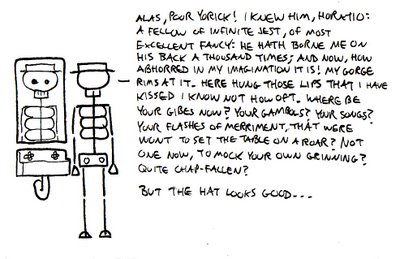 ALAS, POOR YORICK! I KNEW HIM, HORATIO:
A FELLOW OF INFINITE JEST, OF MOST
EXCELLENT FANCY: HE HATH BORNE ME ON
HIS BACK A THOUSAND TIMES; AND NOW, HOW
ABHORRED IN MY IMAGINATION IT IS! MY GORGE
RIMS AT IT. HERE HUNG THOSE LIPS THAT I HAVE
KISSED I KNOW NOT HOW OFT. WHERE BE
YOUR GIBES NOW? YOUR GAMBOLS? YOUR SONGS?
YOUR FLASHES OF MERRIMENT, THAT WERE
WONT TO SET THE TABLE ON A ROAR? NOT
ONE NOW, TO MOCK YOUR OWN GRINNING?
QUITE CHAP-FALLEN?
BUT THE HAT LOOKS GOOD...